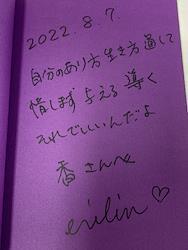 2022.8.7.
自分のあり方生き方通して
惜しまず与える 導く
それでいいんだよ
香さんへ
erilin♡